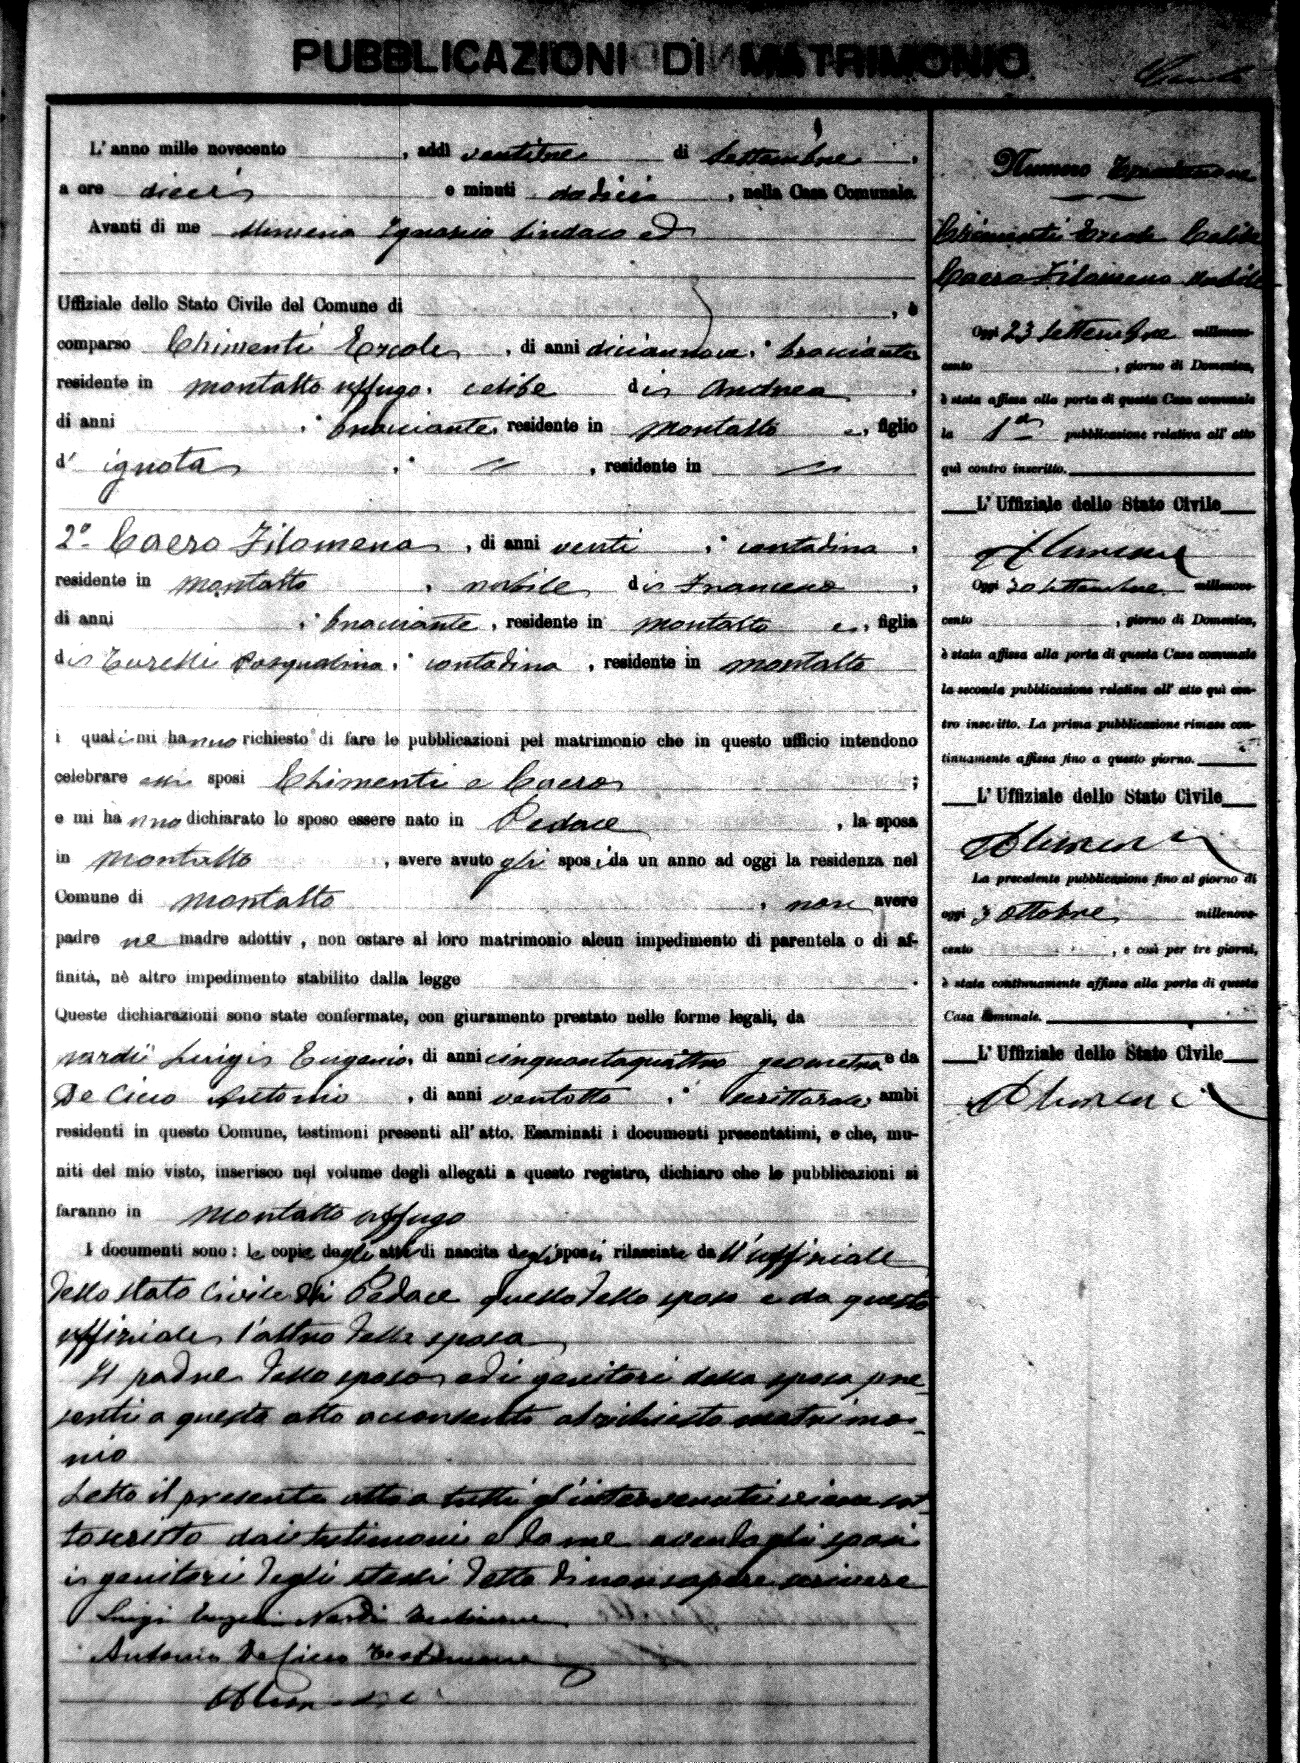 PUBBLICAZIONI DI MATRIMONIO
L'anno mille novecento, addì ventitre di Settembre,
a ore dieci e minuti dodici, nella Casa Comunale.
Avanti di me Ignazio Sindaco ed
Uffiziale dello Stato Civile del Comune di , è
comparso Chimenti Ercole, di anni diciannove, bracciante
residente in Montalto Uffugo, celibe di Andrea,
di anni , bracciante, residente in Montalto e, figlio
d' ignota, " , residente in "
2º Caero Filomena, di anni venti, contadina,
residente in Montalto, nubile di Francesco,
di anni , bracciante, residente in Montalto e, figlia
di Turelli Pasqualina, contadina, residente in Montalto
i quali mi hanno richiesto di fare le pubblicazioni pel matrimonio che in questo ufficio intendono
celebrare essi sposi Chimenti e Caero ;
e mi hanno dichiarato lo sposo essere nato in Pedace, la sposa
in Montalto, avere avuto gli sposi da un anno ad oggi la residenza nel
Comune di Montalto, non avere
padre ne madre adottiv , non ostare al loro matrimonio alcun impedimento di parentela o di af-
finità, nè altro impedimento stabilito dalla legge .
Queste dichiarazioni sono state confermate, con giuramento prestato nelle forme legali, da
Nardi Luigi Eugenio, di anni cinquantaquattro geometra e da
De Cicco Antonio, di anni ventotto, scritturale ambi
residenti in questo Comune, testimoni presenti all'atto. Esaminati i documenti presentatimi, e che, mu-
niti del mio visto, inserisco nel volume degli allegati a questo registro, dichiaro che le pubblicazioni si
faranno in Montalto Uffugo
I documenti sono: le copie degli atti di nascita degli sposi rilasciate da l'uffiziale
dello stato Civile di Pedace quello dello sposo e da questo
uffiziale l'altro della sposa
Il padre dello sposo ed i genitori della sposa pre-
senti a questo atto acconsento al richiesto matrimo-
nio
Letto il presente atto a tutti gl'intervenuti viene sot-
toscritto dai testimoni e da me avendo gli sposi
i genitori degli stessi detto di non sapere scrivere
Luigi Eugenio Nardi testimone
Antonio De Cicco testimone
Numero Trentanove
Chimenti Ercole Celibe
Caero Filomena Nubile
Oggi 23 Settembre millenove-
cento , giorno di Domenica,
è stata affissa alla porta di questa Casa comunale
la 1ª pubblicazione relativa all'atto
quì contro inscritto.
L'Uffiziale dello Stato Civile
Oggi 30 Settembre millenove-
cento , giorno di Domenica,
è stata affissa alla porta di questa Casa comunale
la seconda pubblicazione relativa all'atto quì con-
tro inscritto. La prima pubblicazione rimase con-
tinuamente affissa fino a questo giorno.
L'Uffiziale dello Stato Civile
La precedente pubblicazione fino al giorno di
oggi 3 Ottobre millenove-
cento , e così per tre giorni,
è stata continuamente affissa alla porta di questa
Casa Comunale.
L'Uffiziale dello Stato Civile